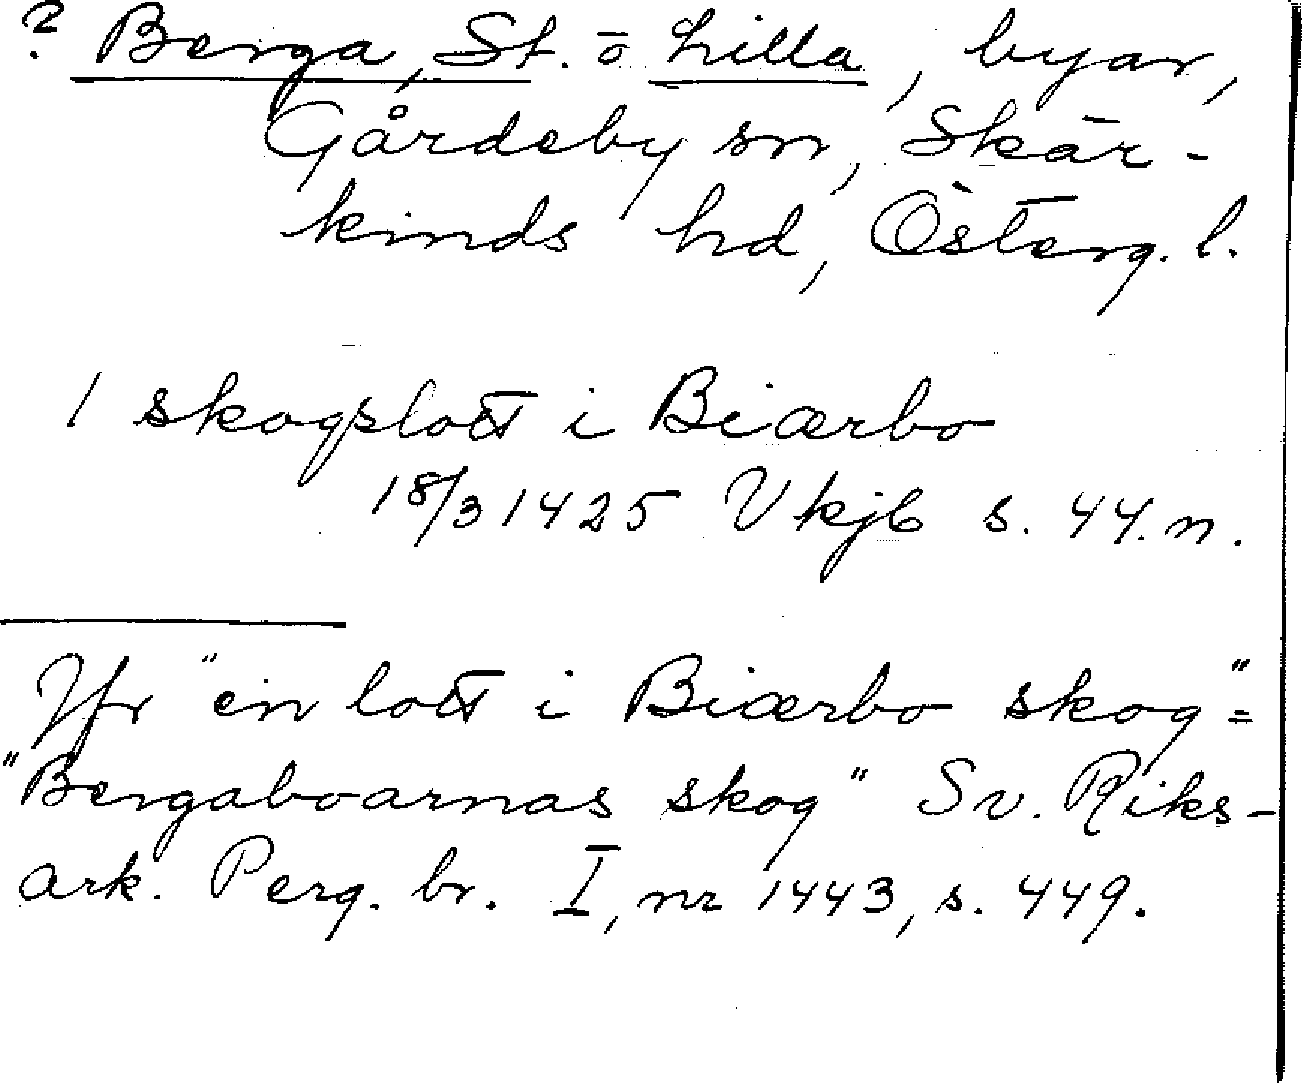 ? Berga, St. o Lilla, byar,
Gårdeby sn, Skär-
kinds hd, Österg. l.
1 skogslott i Biærbo
18/3 1425 Vkjb s. 44. n.
Jfr "en lott i Biærbo skog" =
"Bergaboarnas skog" Sv. Riks-
ark. Perg. br. I, nr 1443, s. 449.